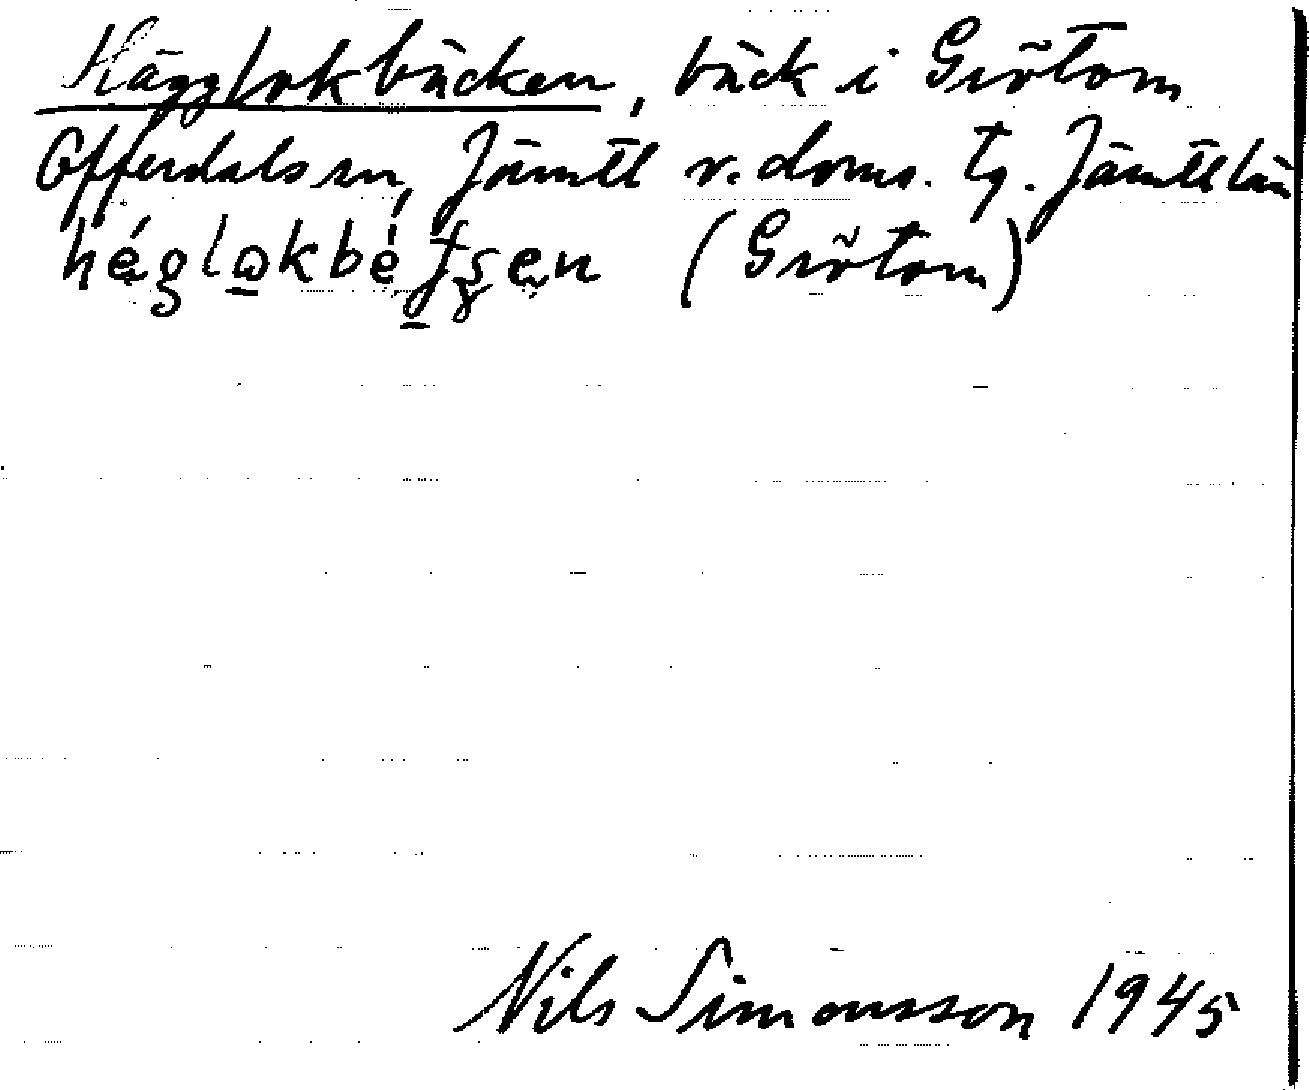 Hägglokbäcken, bäck i Grötom
Offerdals sn, Jämtl v. doms. tg. Jämtl län
(Grötom)
Nils Simonsson 1945